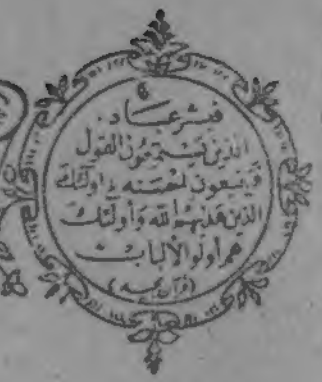 فبشر عباد۔
الذین یستمعون القول
فیتبعون احسنه اولئك
الذین هدیهم الله واولئك
هم اولو الالباب
(قرآن مجید)